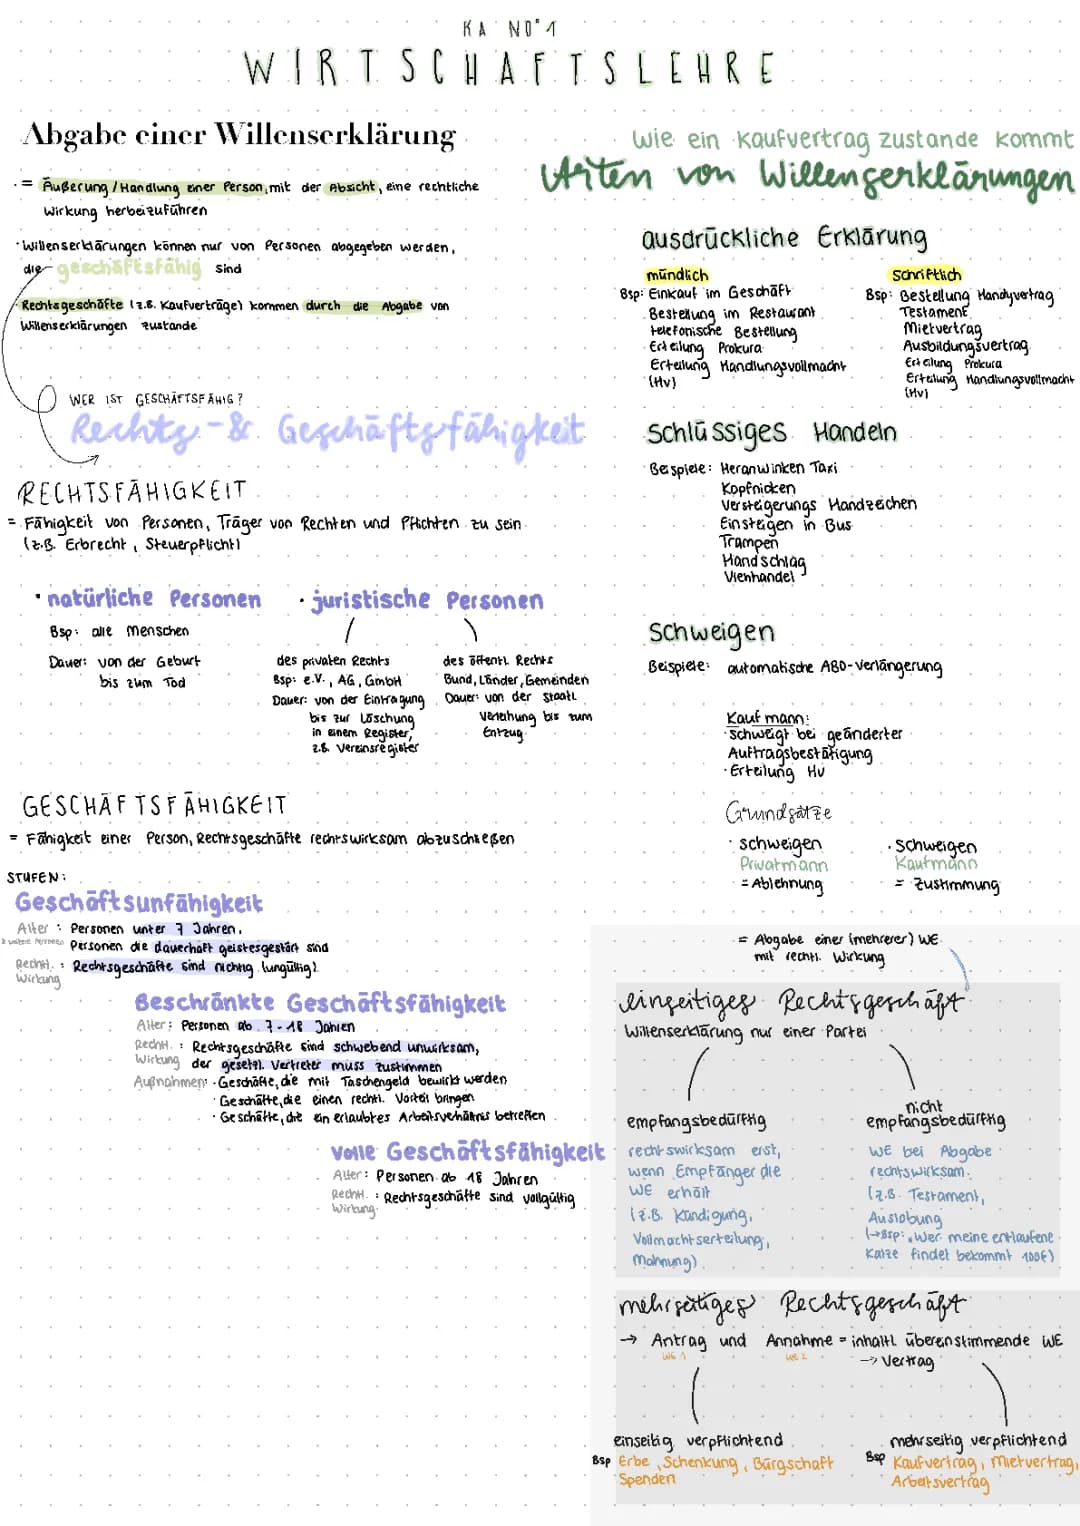 KA NO°1
WIRTSCHAFTSLEHRE
Abgabe einer Willenserklärung
· = Äußerung / Handlung einer Person, mit der Absicht, eine rechtliche
Wirkung herbeizuführen
· Willenserklärungen können nur von Personen abgegeben werden,
die geschäftsfähig sind
· Rechtsgeschäfte (z.B. Kaufverträge) kommen durch die Abgabe von
Willenserklärungen zustande
WER IST GESCHÄFTSFÄHIG?
Rechts- & Geschäftsfähigkeit
RECHTSFÄHIGKEIT
= Fähigkeit von Personen, Träger von Rechten und Pflichten zu sein
(z.B. Erbrecht, Steuerpflicht)
· natürliche Personen
Bsp: alle Menschen
Dauer: von der Geburt
bis zum Tod
· juristische Personen
des privaten Rechts
Bsp: e.V., AG, GmbH
Dauer: von der Eintragung
bis zur Löschung
in einem Register,
z.B. Vereinsregister
des öffentl. Rechts
Bund, Länder, Gemeinden
Dauer: von der staatl.
Verleihung bis zum
Entzug
GESCHÄFTSFÄHIGKEIT
= Fähigkeit einer Person, Rechtsgeschäfte rechtswirksam abzuschließen
STUFEN:
Geschäftsunfähigkeit
Alter: Personen unter 7 Jahren,
& weitere Personen Personen die dauerhaft geistesgestört sind
Rechtl. Wirkung: Rechtsgeschäfte sind nichtig (ungültig)
Beschränkte Geschäftsfähigkeit
Alter: Personen ab 7-18 Jahren
Rechtl. Wirkung: Rechtsgeschäfte sind schwebend unwirksam,
der gesetzl. Vertreter muss zustimmen
Außnahmen: · Geschäfte, die mit Taschengeld bewirkt werden
· Geschäfte, die einen rechtl. Vorteil bringen
· Geschäfte, die ein erlaubtes Arbeitsverhältnis betreffen
Volle Geschäftsfähigkeit
Alter: Personen ab 18 Jahren
Rechtl. Wirkung: Rechtsgeschäfte sind vollgültig
Wie ein Kaufvertrag zustande kommt
Arten von Willenserklärungen
ausdrückliche Erklärung
mündlich
Bsp: Einkauf im Geschäft
Bestellung im Restaurant
telefonische Bestellung
Erteilung Prokura
Erteilung Handlungsvollmacht
(Hv)
schriftlich
Bsp: Bestellung Handyvertrag
Testament
Mietvertrag
Ausbildungsvertrag
Erteilung Prokura
Erteilung Handlungsvollmacht
(Hv)
Schlüssiges Handeln
Beispiele: Heranwinken Taxi
Kopfnicken
Versteigerungs Handzeichen
Einsteigen in Bus
Trampen
Handschlag
Viehhandel
Schweigen
Beispiele: automatische ABO-Verlängerung
Kaufmann:
· schweigt bei geänderter
Auftragsbestätigung
· Erteilung Hv
Grundsätze
· schweigen
Privatmann
= Ablehnung
· Schweigen
Kaufmann
= Zustimmung
= Abgabe einer (mehrerer) WE
mit rechtl. Wirkung
einseitiges Rechtsgeschäft
Willenserklärung nur einer Partei
empfangsbedürftig
rechtswirksam erst,
wenn Empfänger die
WE erhält
(z.B. Kündigung,
Vollmachtserteilung,
Mahnung)
nicht
empfangsbedürftig
WE bei Abgabe
rechtswirksam.
(z.B. Testament,
Auslobung
(→Bsp: „Wer meine entlaufene
Katze findet bekommt 100€)
mehrseitiges Rechtsgeschäft
→ Antrag und Annahme = inhaltl. übereinstimmende WE
WE 1 WE 2 → Vertrag
einseitig verpflichtend
Bsp Erbe, Schenkung, Bürgschaft
Spenden
mehrseitig verpflichtend
Bsp Kaufvertrag, Mietvertrag,
Arbeitsvertrag